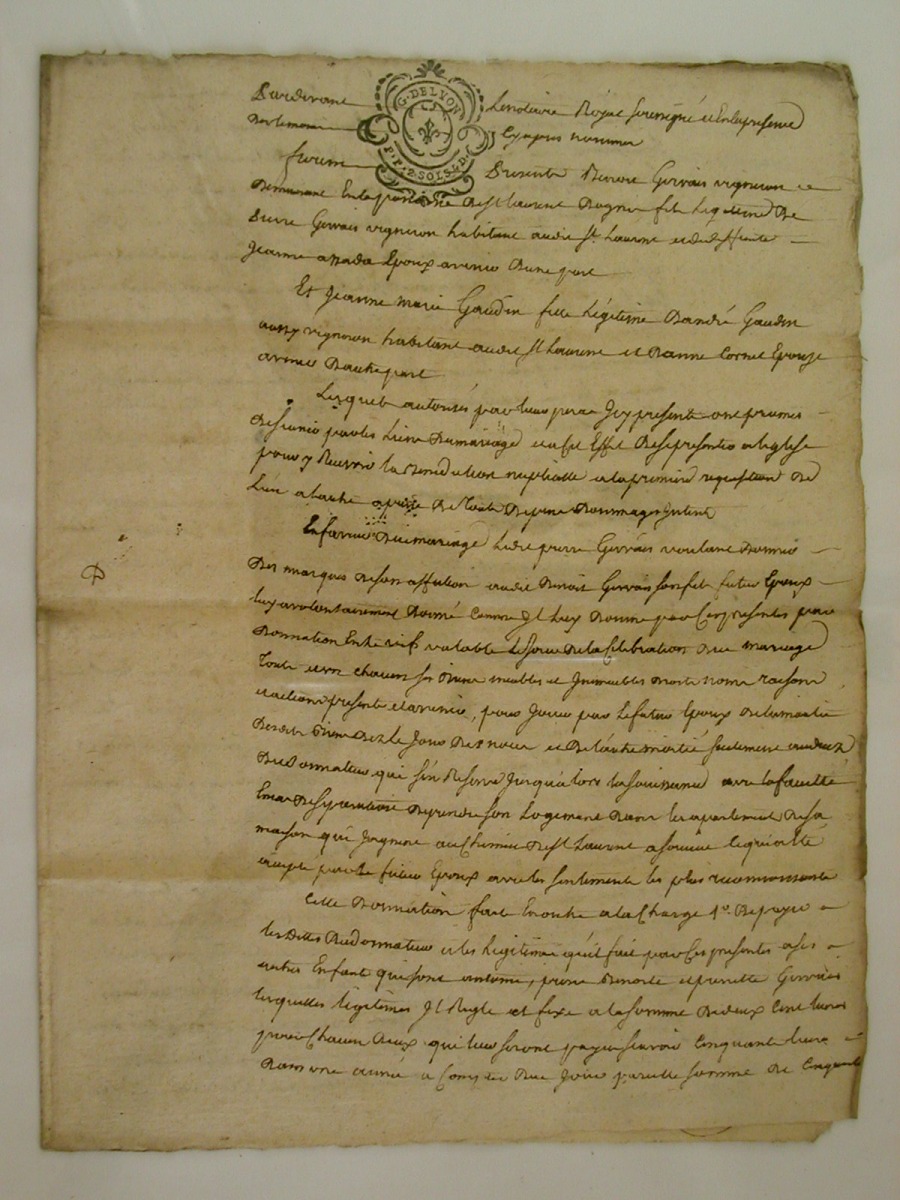 Pardevant Le notaire Royal soussigné et en la presence
Des temoins cy apres nommes
G. DE LYON
P. P. 2 SOLS 4 D.
furent Presents Benoit Gervais vigneron
Demeurant En la paroisse De St Laurent Dagny fils Legitime De
Pierre Gervais vigneron habitant audit St Laurent et de deffunte
Jeanne Epoux avenir Dune part
Et Jeanne marie Gaudin fille Légitime Dandré Gaudin
aussy vigneron habitant audit St Laurent et Danne Cornet Epouse
avenir Dautre part
Lesquels autorisés par leurs peres Icy presents ont promis
De sunir par les Liens Du mariage et a cet Effet De se presenter a leglise
pour y Recevoir la Benediction nuptialle a la premiere requisition De
Lun a lautre a peine De Touts Depens Dommages Interets
En faveur Dud mariage Ledit pierre Gervais voulant Donner
Des marques De son affection audit Benoit Gervais son fils futur Epoux
luy a volontairement Donné comme Il luy Donne par Ces presentes par
Donnation Entre vifs valable Le jour De la Celebration Dud mariage
Touts et un chacun ses Biens meubles et Immeubles Droits noms raisons
et actions presents et avenir, pour Jouir par Le futur Epoux De la moitié
Desdits Biens Dez le Jour Des noces et De l'autre moitié seulement au decez
Du Donnateur qui s'en Reserve Jusqu'alors la Jouissance avec la faculté
En cas De separation De prendre son Logement Dans les apartements De sa
maison qui Joignent au Chemin De St Laurent a ce qui a été
accepté par le futur Epoux avec les sentiments les plus reconnoissants
Cette Donnation faite En outre a la Charge 1o. De payer
les Dettes Du donnateur et les Legitimes qu'il fait par Ces presentes a ses
autres Enfants qui sont antoine, pierre Benoite et pierrette Gervais
lesquelles légitimes Il Regle et fixe a la somme De deux Cent livres
pour Chacun Deux qui leur seront payes scavoir Cinquante livres
Dans une année a Compter Dud Jour pareille somme de Cinquante